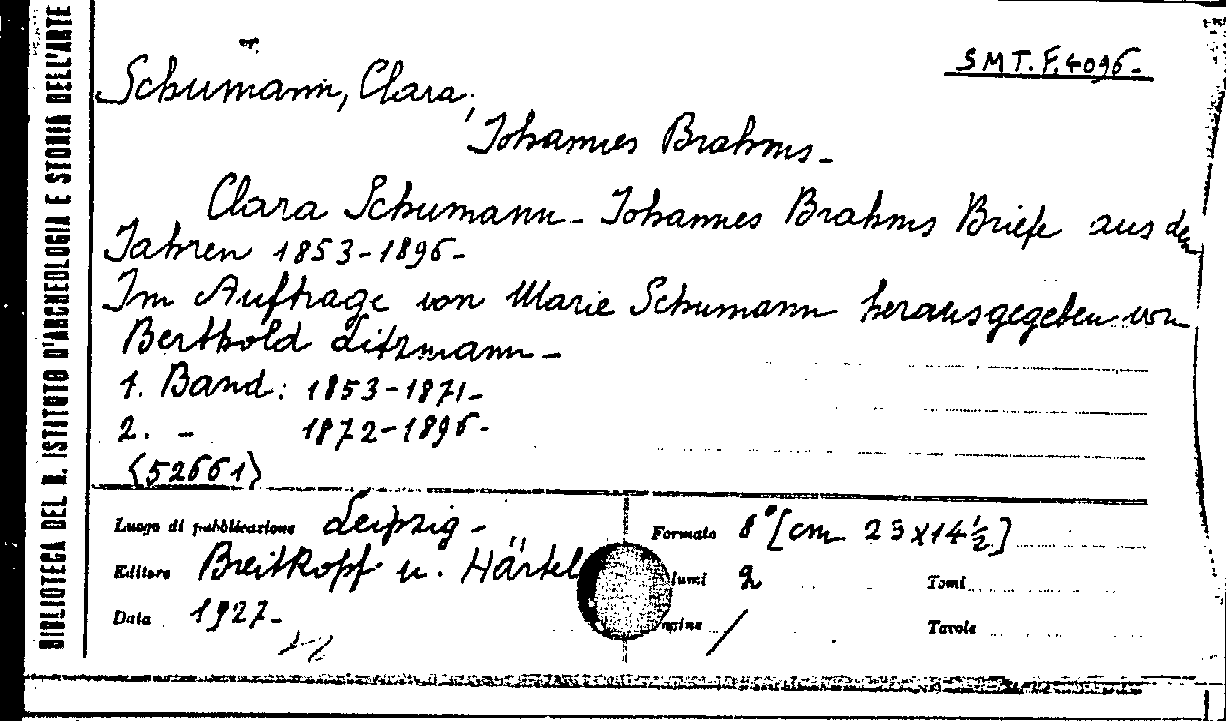 BIBLIOTECA DEL R. ISTITUTO D'ARCHEOLOGIA E STORIA DELL'ARTE
S M T. F. 4096-
Schumann, Clara;
Johannes Brahms-
Clara Schumann - Johannes Brahms Briefe aus den
Jahren 1853-1896-
Im Auftrage von Marie Schumann herausgegeben von
Berthold Litzmann-
1. Band: 1853-1871-
2. - 1872-1896-
(52661)
Luogo di pubblicazione Leipzig-
Formato 8° [cm 23x14½]
Editore Breitkopf u. Härtel
lumi 2 Tomi
Data 1927-
/ Tavole